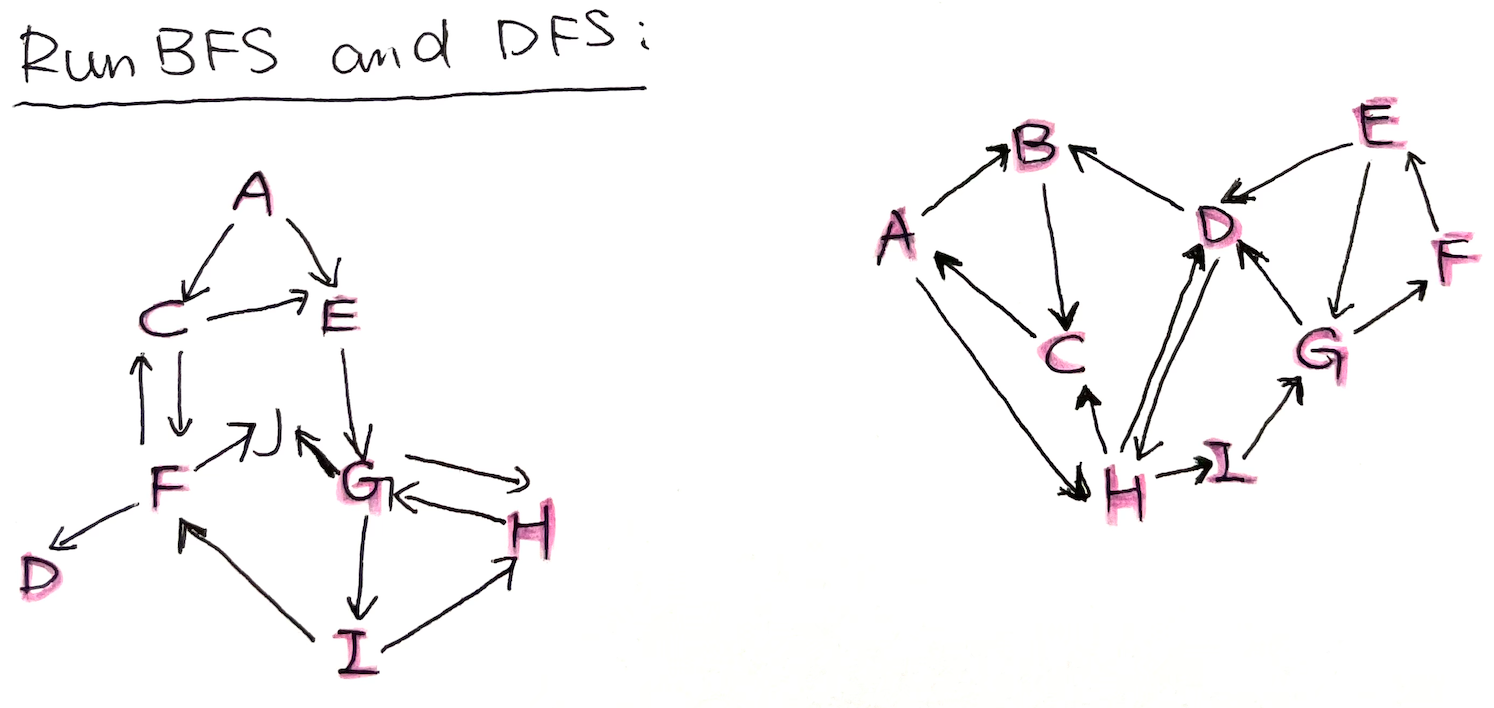 Run BFS and DFS:
A
C E
F J G
H
D
I
B E
A D F
C G
H I